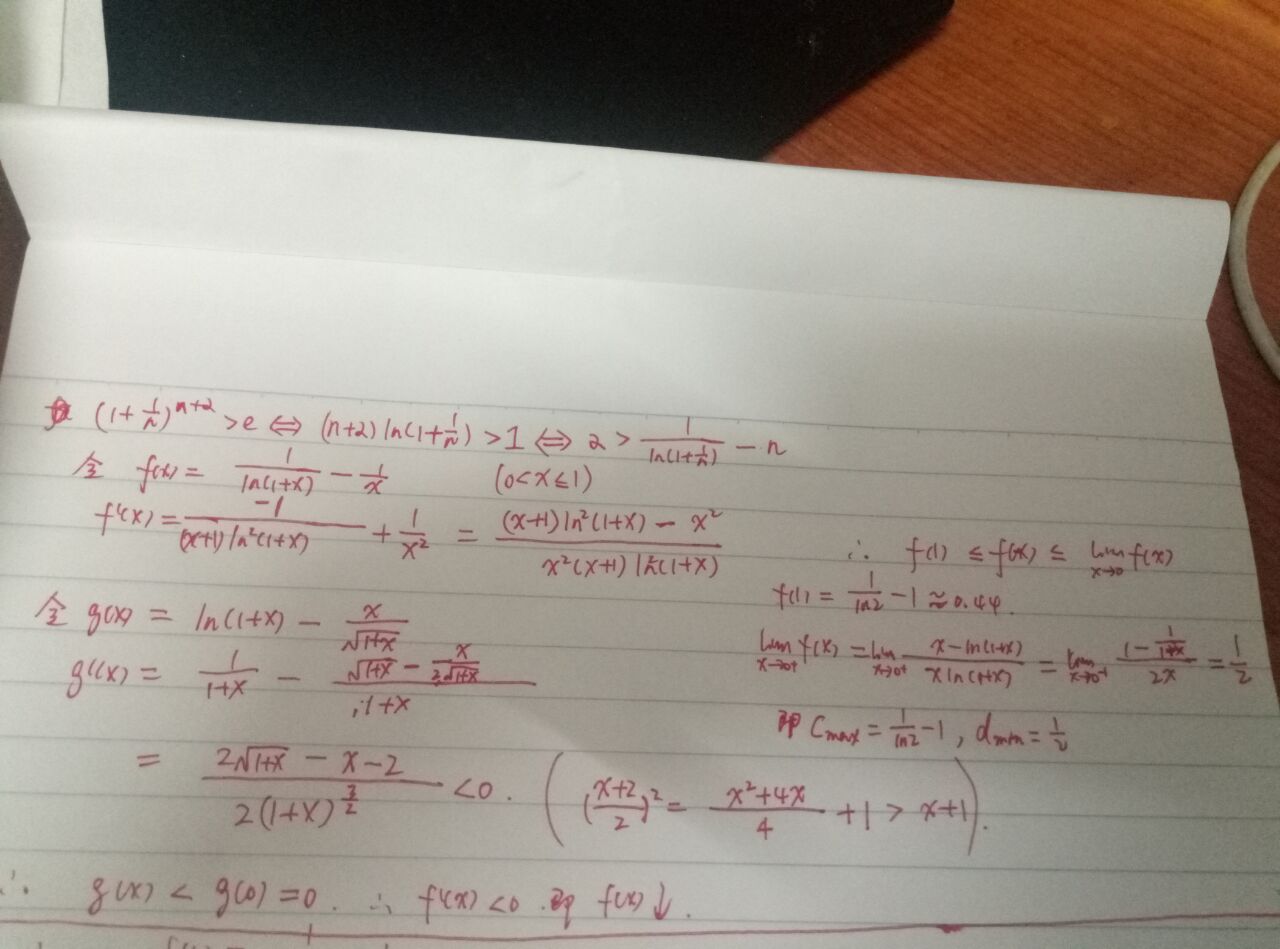 (1+1/n)^{n+2} >e ⇔ (n+2) ln(1+1/n) >1 ⇔ 2 > 1/ln(1+1/n) - n
令 f(x) = 1/ln(1+x) - 1/x (0<x≤1)
f'(x) = -1/((x+1)ln²(1+x)) + 1/x² = ((x+1)ln²(1+x) - x²)/(x²(x+1)ln²(1+x))
令 g(x) = ln(1+x) - x/√(1+x)
g'(x) = 1/(1+x) - (√(1+x) - x/(2√(1+x)))/(1+x)
= (2√(1+x) - x - 2)/(2(1+x)^{3/2}) <0. (((x+2)/2)² = (x²+4x)/4 +1 > x+1).
∴ g(x) < g(0) =0. ∴ f'(x) <0 即 f(x)↓.
∴ f(1) ≤ f(x) ≤ lim_{x→0} f(x)
f(1) = 1/ln2 - 1 ≈ 0.44.
lim_{x→0+} f(x) = lim_{x→0+} (x-ln(1+x))/(x ln(1+x)) = lim_{x→0+} (1 - 1/(1+x))/(2x) = 1/2
即 C_max = 1/ln2 - 1, d_min = 1/2